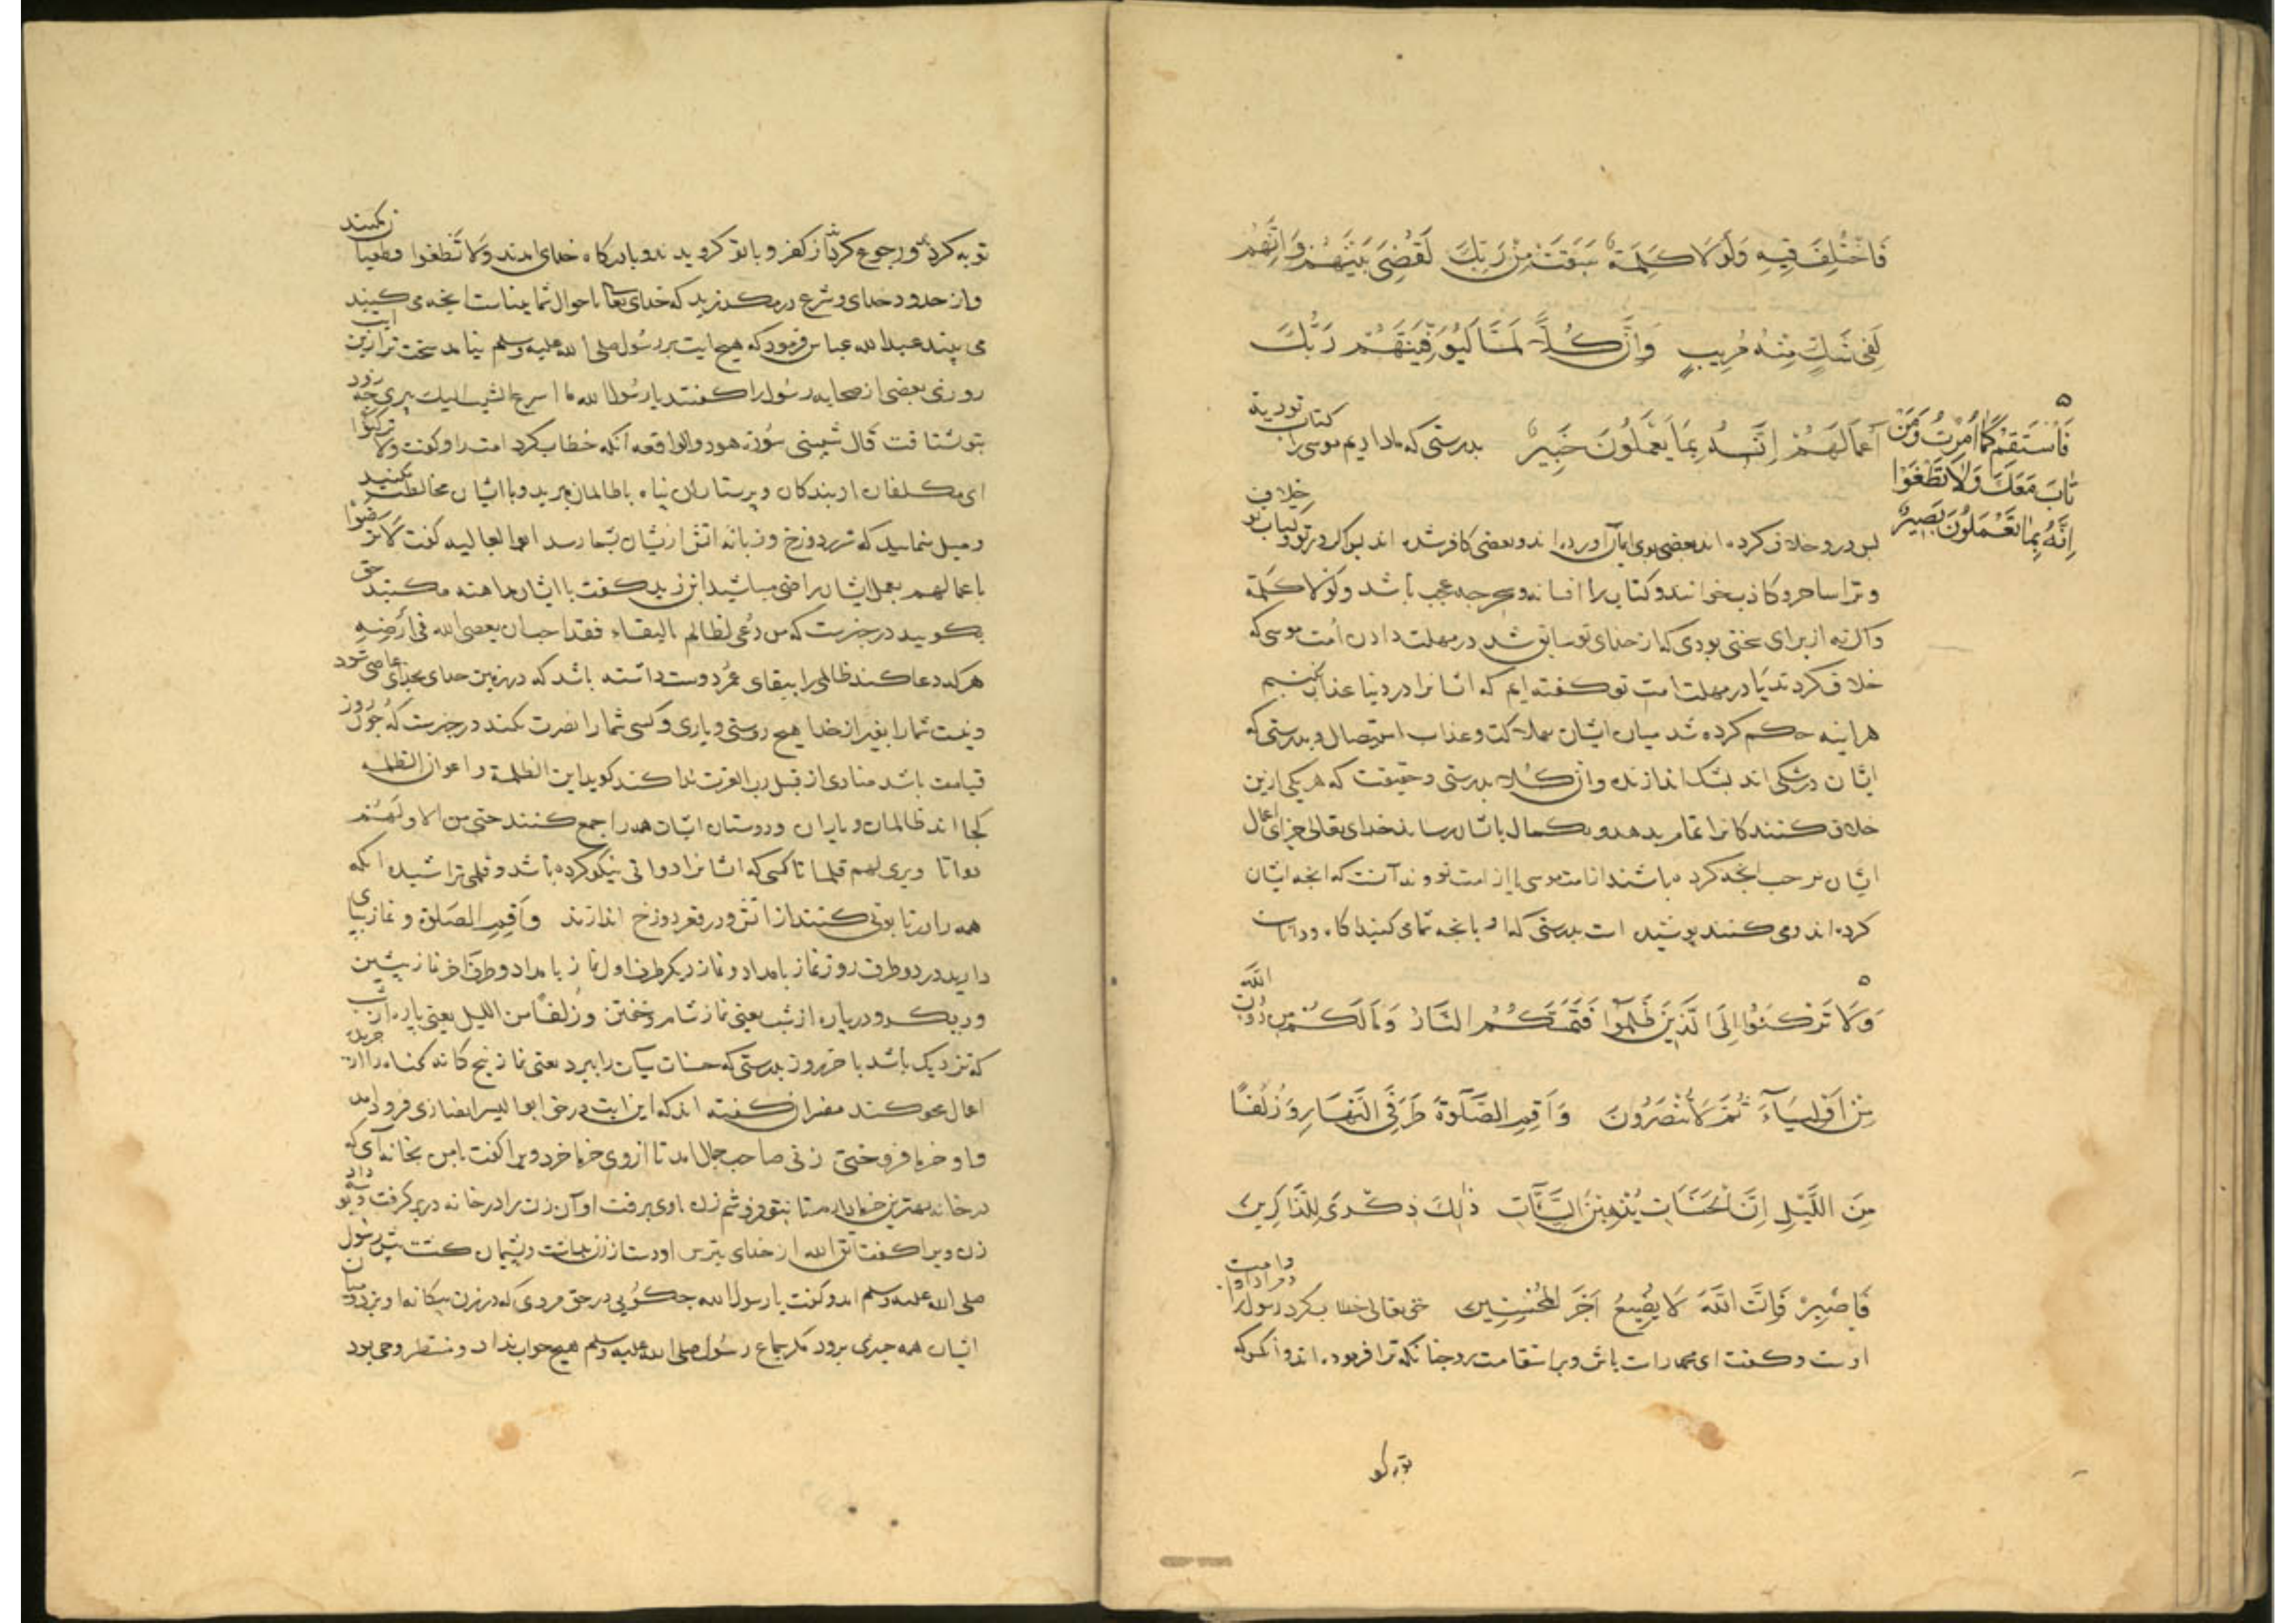 فَاخْتُلِفَ فِيهِ وَلَوْلَا كَلِمَةٌ سَبَقَتْ مِنْ رَبِّكَ لَقُضِيَ بَيْنَهُمْ وَإِنَّهُمْ
لَفِي شَكٍّ مِنْهُ مُرِيبٍ وَإِنَّ كُلًّا لَمَّا لَيُوَفِّيَنَّهُمْ رَبُّكَ
أَعْمَالَهُمْ إِنَّهُ بِمَا يَعْمَلُونَ خَبِيرٌ بدرستی که ما دادیم موسی را کتاب توریة
فَاسْتَقِمْ كَمَا أُمِرْتَ وَمَنْ
تَابَ مَعَكَ وَلَا تَطْغَوْا
إِنَّهُ بِمَا تَعْمَلُونَ بَصِيرٌ
درو خلاف کرده اند بعضی بوی ایمان آورده اند و بعضی کافر شده اند خلاف
و ترا ساحر و کاذب خوانند و کتاب را افسانه عجب باشد ولولا کلمة
واکر نه از برای سخنی بودی که از خدای تو سابق شد در مهلت دادن امت موسی که
خلاف کردند یا در مهلت امت تو کفته ایم که ایشانرا در دنیا عذاب نکنیم
هراینه حکم کرده شد میان ایشان بهلاکت و عذاب استیصال و بدرستی که
ایشان در شکی اند بشک اندازنده وان کلا بدرستی و حقیقت که هر یکی ازین
خلاف کنندکانرا تمام بدهد و بکمال بایشان رساند خدای تعالی جزای اعمال
ایشان بر حسب انجه کرده باشند از امت موسی یا از امت تو آنست که انجه ایشان
کرده اند و می کنند پوشیده است بدرستی که او بانجه شما می کنید اکاه و داناست
وَلَا تَرْكَنُوا إِلَى الَّذِينَ ظَلَمُوا فَتَمَسَّكُمُ النَّارُ وَمَا لَكُمْ مِنْ دُونِ اللَّهِ
مِنْ أَوْلِيَاءَ ثُمَّ لَا تُنْصَرُونَ وَأَقِمِ الصَّلَوةَ طَرَفَيِ النَّهَارِ وَزُلَفًا
مِنَ اللَّيْلِ إِنَّ الْحَسَنَاتِ يُذْهِبْنَ السَّيِّئَاتِ ذَلِكَ ذِكْرَى لِلذَّاكِرِينَ
فَاصْبِرْ فَإِنَّ اللَّهَ لَا يُضِيعُ أَجْرَ الْمُحْسِنِينَ حق تعالی خطاب کرد رسول را
اوست و کفت ای محمد راست باش و بر استقامت رو جنانکه ترا فرموده اند و انکس که
توبه کرد
توبه کرد و رجوع کرد از کفر و با تو کرویدند و بادرکاه خدای امدند ولا تطغوا و طغیان نکنید
و از حدود خدای و شرع در مکذرید که خدای تعالی باحوال شما بیناست انجه می کنید
می بیند عبدالله عباس فرمود که هیچ ایت بر رسول صلی الله علیه وسلم نیامد سخت تر ازین ایت
روزی بعضی از صحابه رسول را کفتند یا رسول الله ما اسرع الشیب الیک پیری جه زود
بتو شتافت قال شیبتنی سورة هود والواقعه آنکه خطاب کرد امت را و کفت ولا ترکنوا
ای مکلفان از بندکان و پرستاران پناه با ظالمان مبرید و با ایشان مخالطت مکنید
و میل منمایید که دوزخ و زبانه اتش ازیشان بشما رسد ابوالعالیه کفت لا ترضوا
باعمالهم بعمل ایشان راضی مباشید ابن زید کفت با ایشان مداهنه مکنید حق
بکویید در خبرست که من دعی لظالم بالبقاء فقد احب ان یعصی الله فی ارضه
هرکه دعا کند ظالمی را ببقای عمر دوست داشته باشد که در زمین خدای بخدای عاصی شود
و نیست شمارا بغیر از خدا هیچ دوستی و یاری و کسی شمارا نصرت نکند در خبرست که جون روز
قیامت باشد منادی از قبل رب العزت ندا کند کوید این الظلمة و اعوان الظلمه
کجا اند ظالمان و یاران و دوستان ایشان همه را جمع کنند حتی من لاق لهم
دواتا و بری لهم قلما تا کسی که ایشانرا دواتی نیکو کرده باشد و قلمی تراشیده انکه
همه را در تابوتی کنند از اتش و در قعر دوزخ اندازند وأقم الصلوة و نماز بپای
دارید در دو طرف روز نماز بامداد و نماز دیکر طرف اول نماز بامداد و طرف اخر نماز پیشین
و دیکر و در پاره از شب یعنی نماز شام و خفتن وزلفا من اللیل یعنی پاره از شب
که نزدیک باشد باخر روز بدرستی که حسنات سیآت را ببرد یعنی نماز پنج کانه کناه را از جریده
اعمال محو کند مفسران کفته اند که این ایت در حق ابو الیسر انصاری فرود آمد
و او خرما فروختی زنی صاحب جمال امد تا از وی خرما خرد ویرا کفت با من بخانه آی که
در خانه بهترین خرما دارم تا بتو فروشم زن با وی برفت او آن زن را در خانه در بر کرفت و بوسه داد
زن ویرا کفت اتق الله از خدای بترس او دست از زن بداشت و پشیمان کشت پیش رسول
صلی الله علیه وسلم امد و کفت یا رسول الله جه کویی در حق مردی که در زن بیکانه اویزد و میان
ایشان همه جیزی برود مکر جماع رسول صلی الله علیه وسلم هیچ جواب نداد و منتظر وحی بود